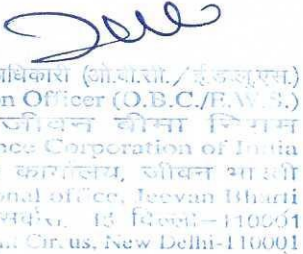 धिकारी (ओ.बी.सी./ई.डब्लू.एस.)
on Officer (O.B.C./E.W.S.)
जीवन बीमा निगम
nce Corporation of India
कार्यालय, जीवन भारती
onal office, Jeevan Bharti
सर्कस, दिल्ली-110001
Circus, New Delhi-110001